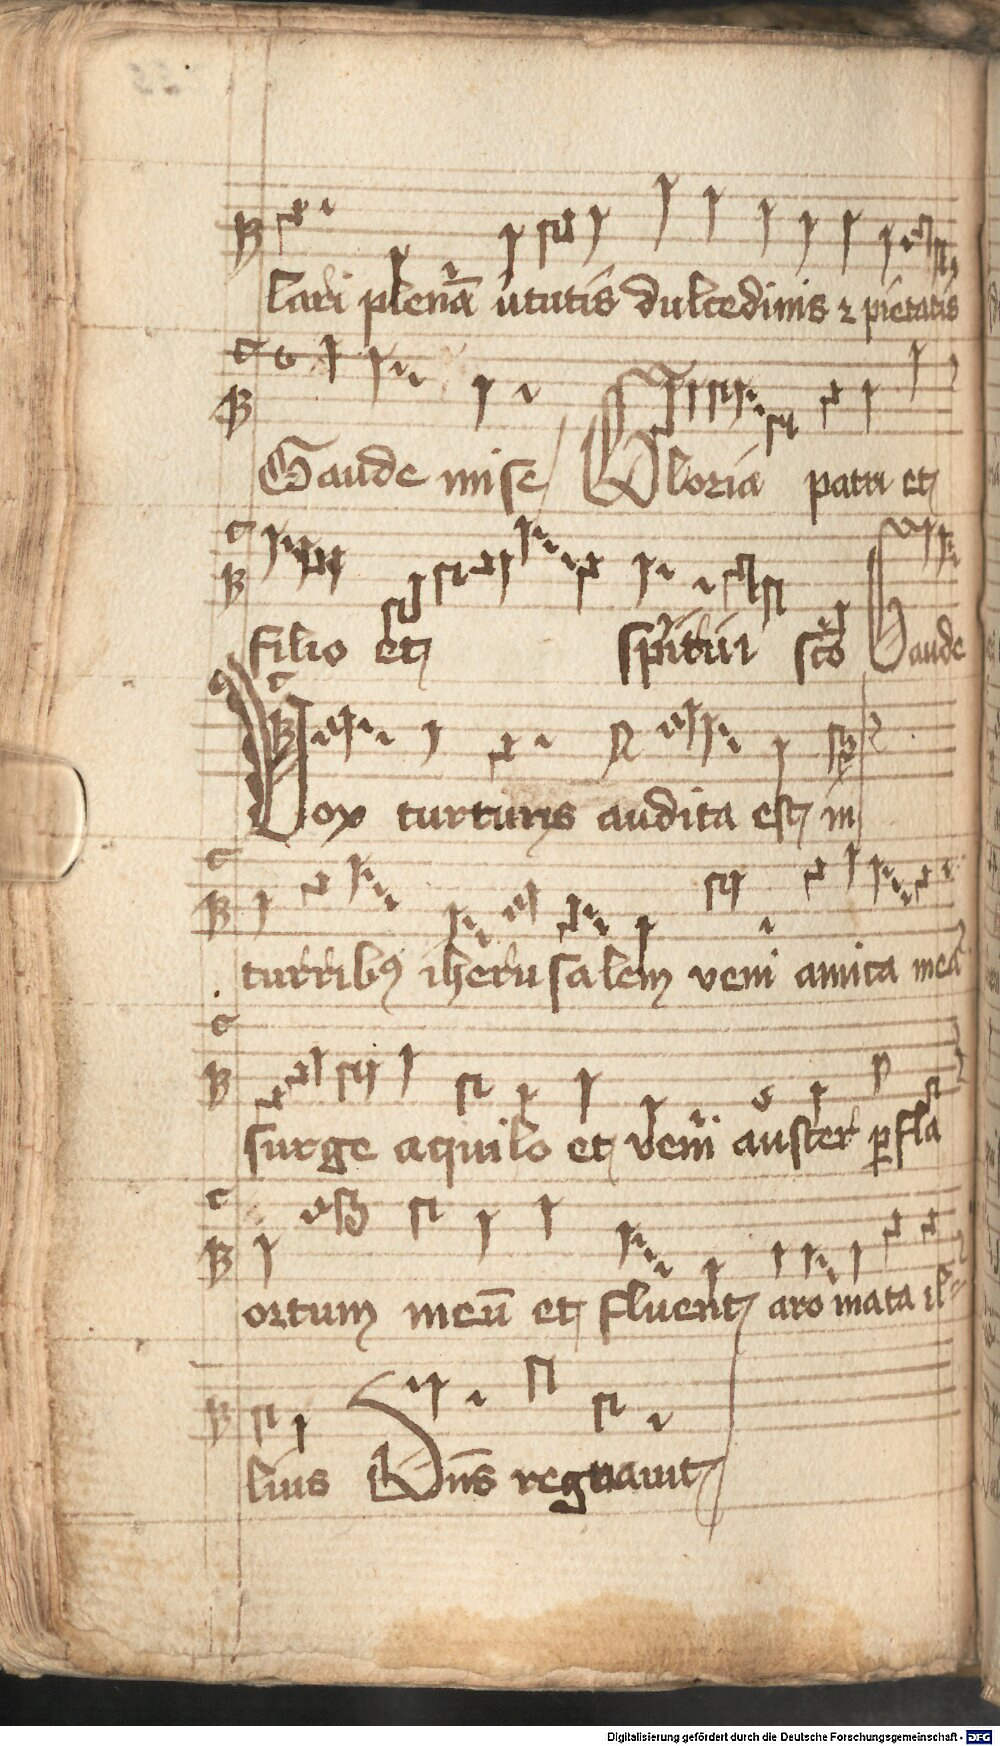 lari plenā ututis dulcedinis ⁊ pietatis
Gaude mise Gloria patri et
filio et spiritui scō Gaude
Vox turturis audita est in
turribꝯ iherusalem veni amica mea
surge aquilo et veni auster ꝑfla
ortum meū et fluent aromata il
lius Dn̄s regnauit
Digitalisierung gefördert durch die Deutsche Forschungsgemeinschaft - DFG